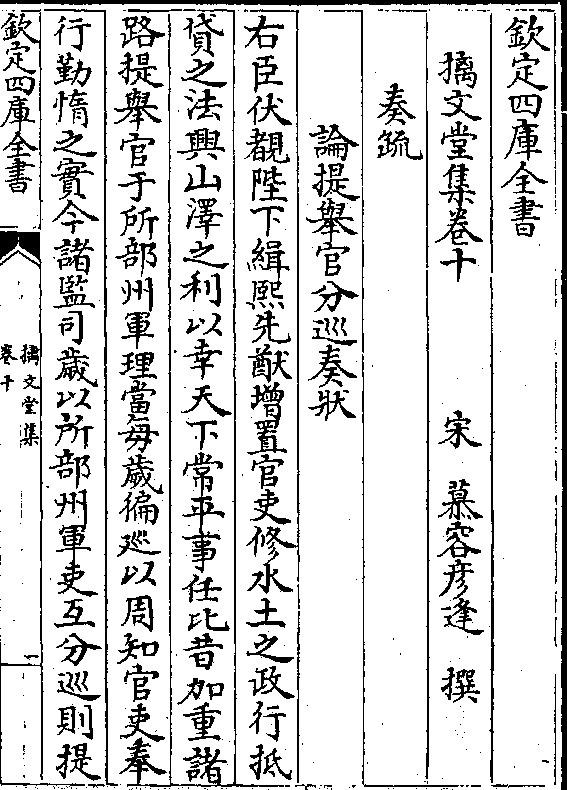 欽定四庫全書
摛文堂集卷十　宋　慕容彦逢　撰
奏疏
論提舉官分巡奏狀
右臣伏覩陛下緝熙先猷增置官吏修水土之政行抵
貸之法興山澤之利以幸天下常平事任比昔加重諸
路提舉官于所部州軍理當每歲徧巡以周知官吏奉
行勤惰之實今諸監司歲以所部州軍吏互分巡則提
欽定四庫全書
摛文堂集
卷十
一